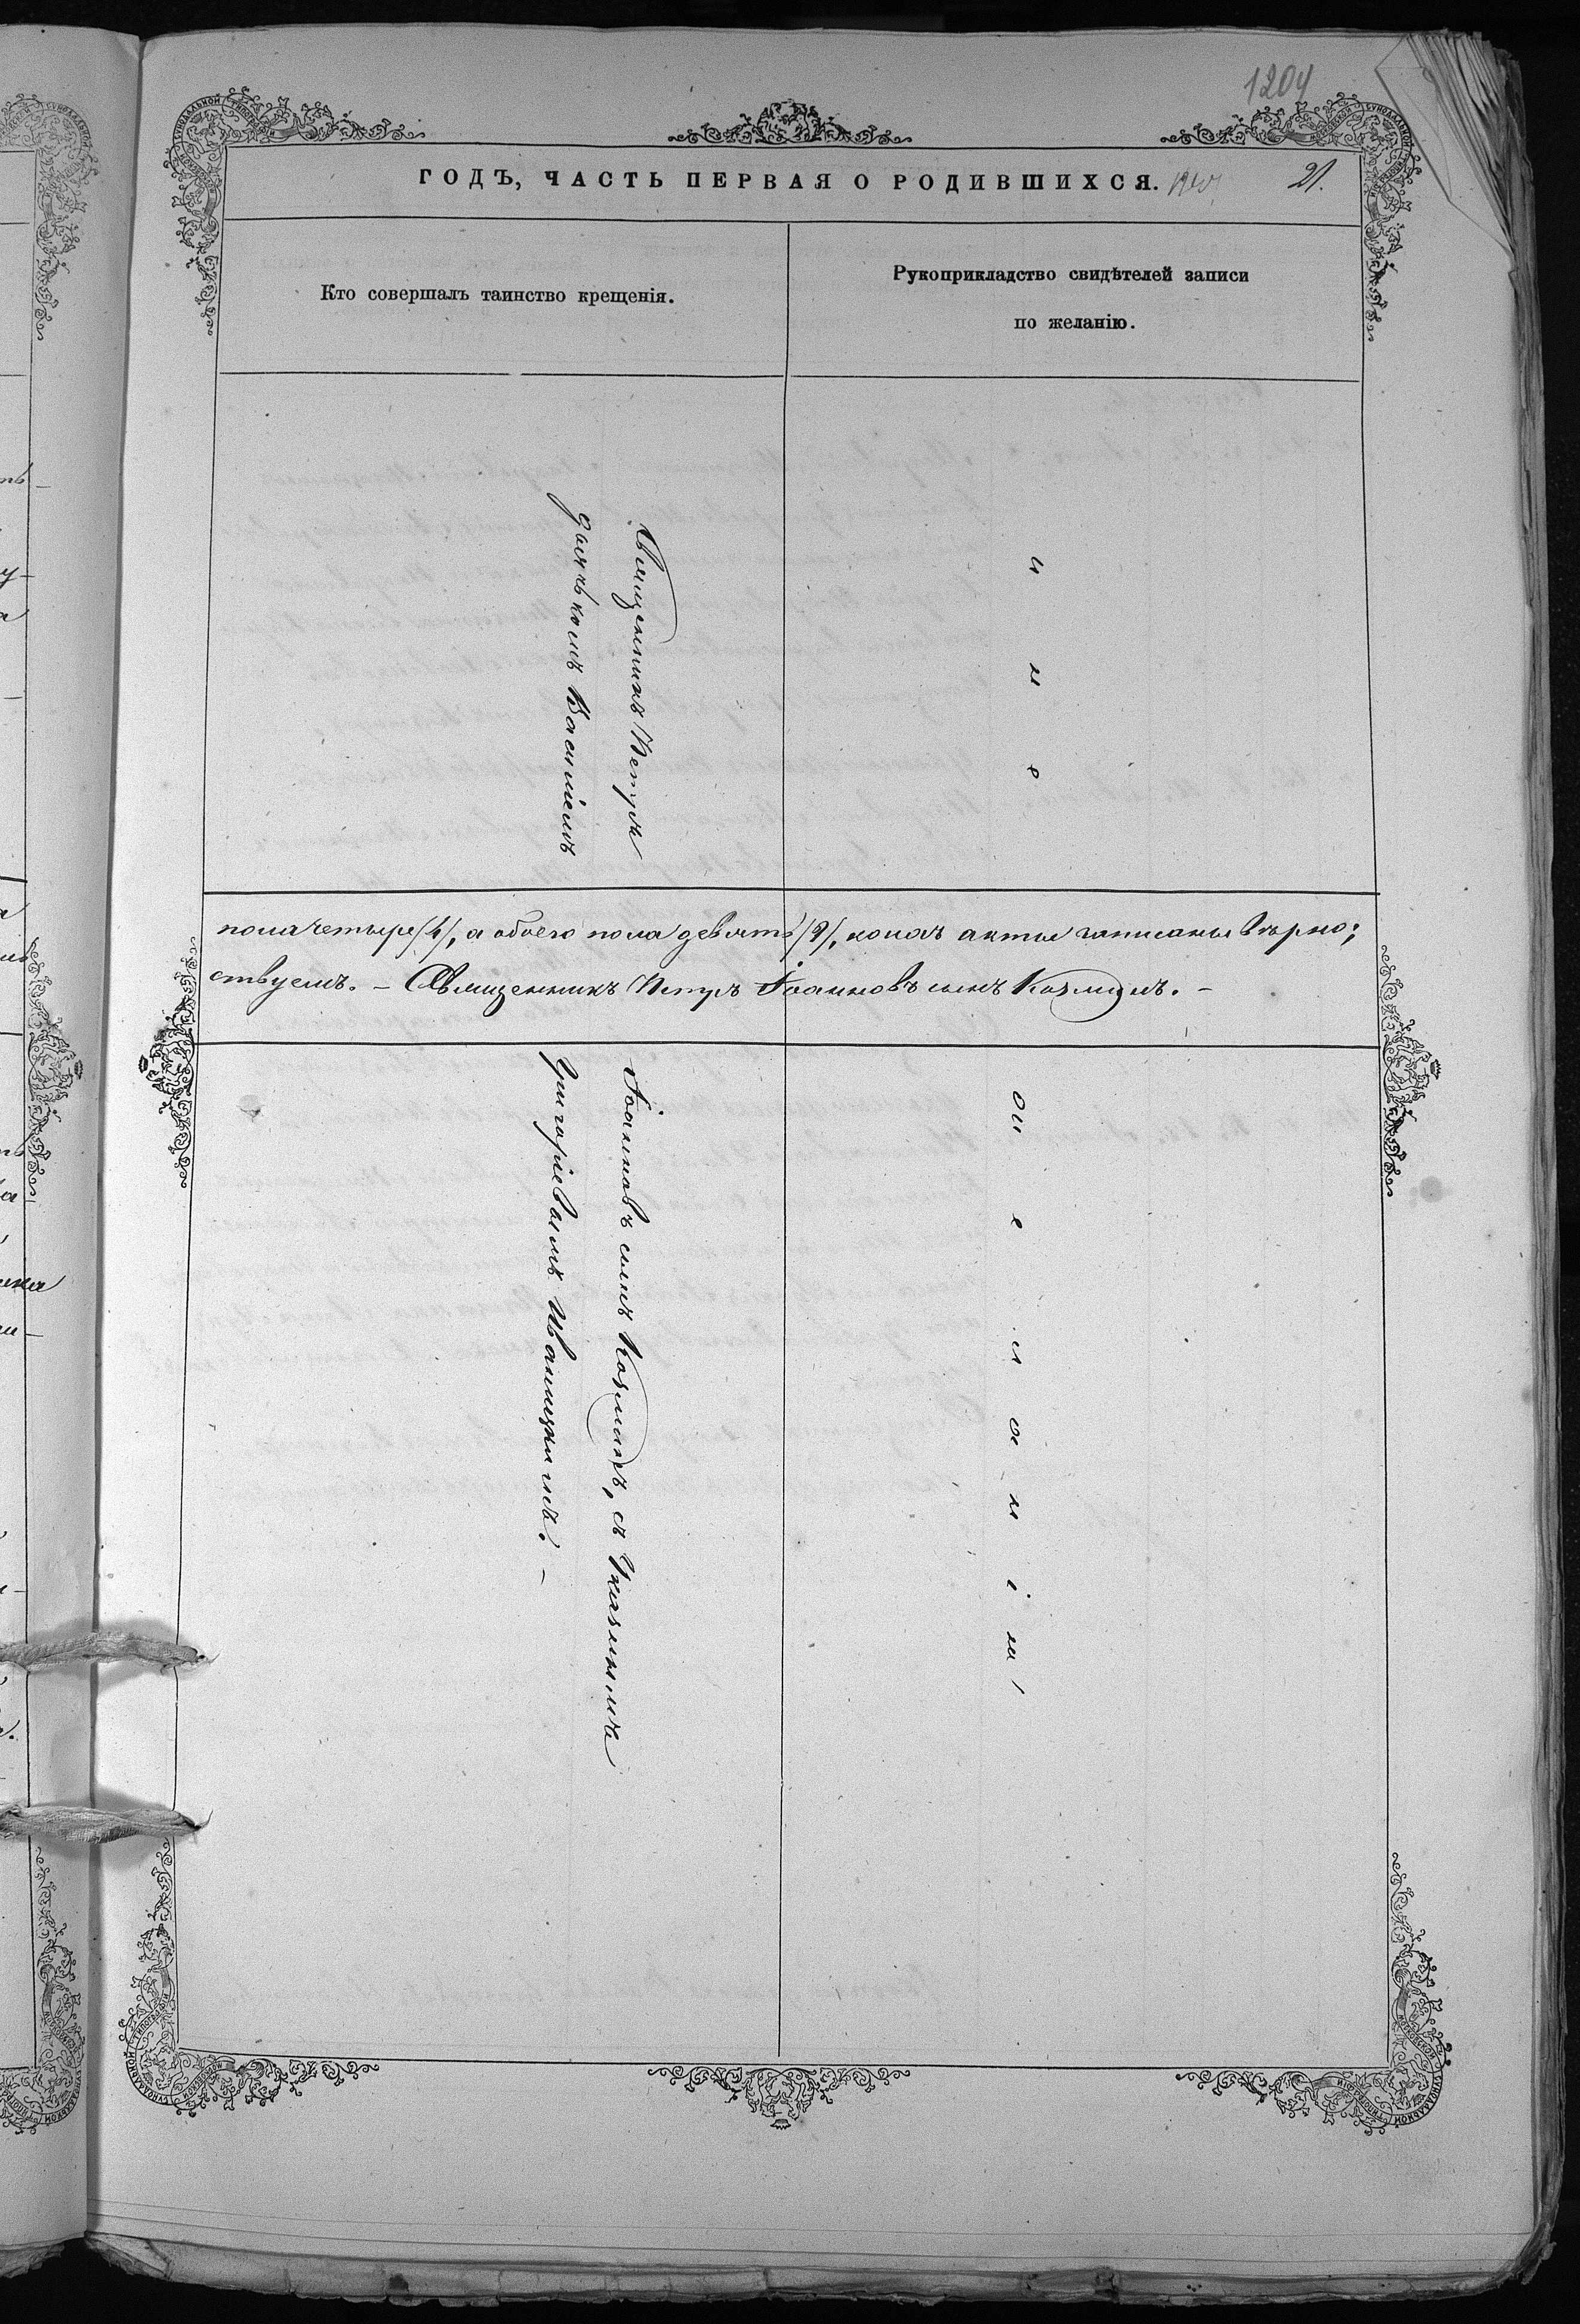 1204
ГОДЪ, ЧАСТЬ ПЕРВАЯ О РОДИВШИХСЯ.
21.
Кто совершалъ таинство крещенія.
Рукоприкладство свидѣтелей записи
по желанію.
Священникъ Петръ
дьячькомъ Василіемъ
пола четыре /4/, а обоего пола девять /9/, коихъ акты записаны вѣрно;
ствуемъ. – Священникъ Петръ Іоанновъ сынъ Козминъ. –
Іоанновъ сынъ Козминъ, съ
Григоріевымъ Иваницкимъ. –